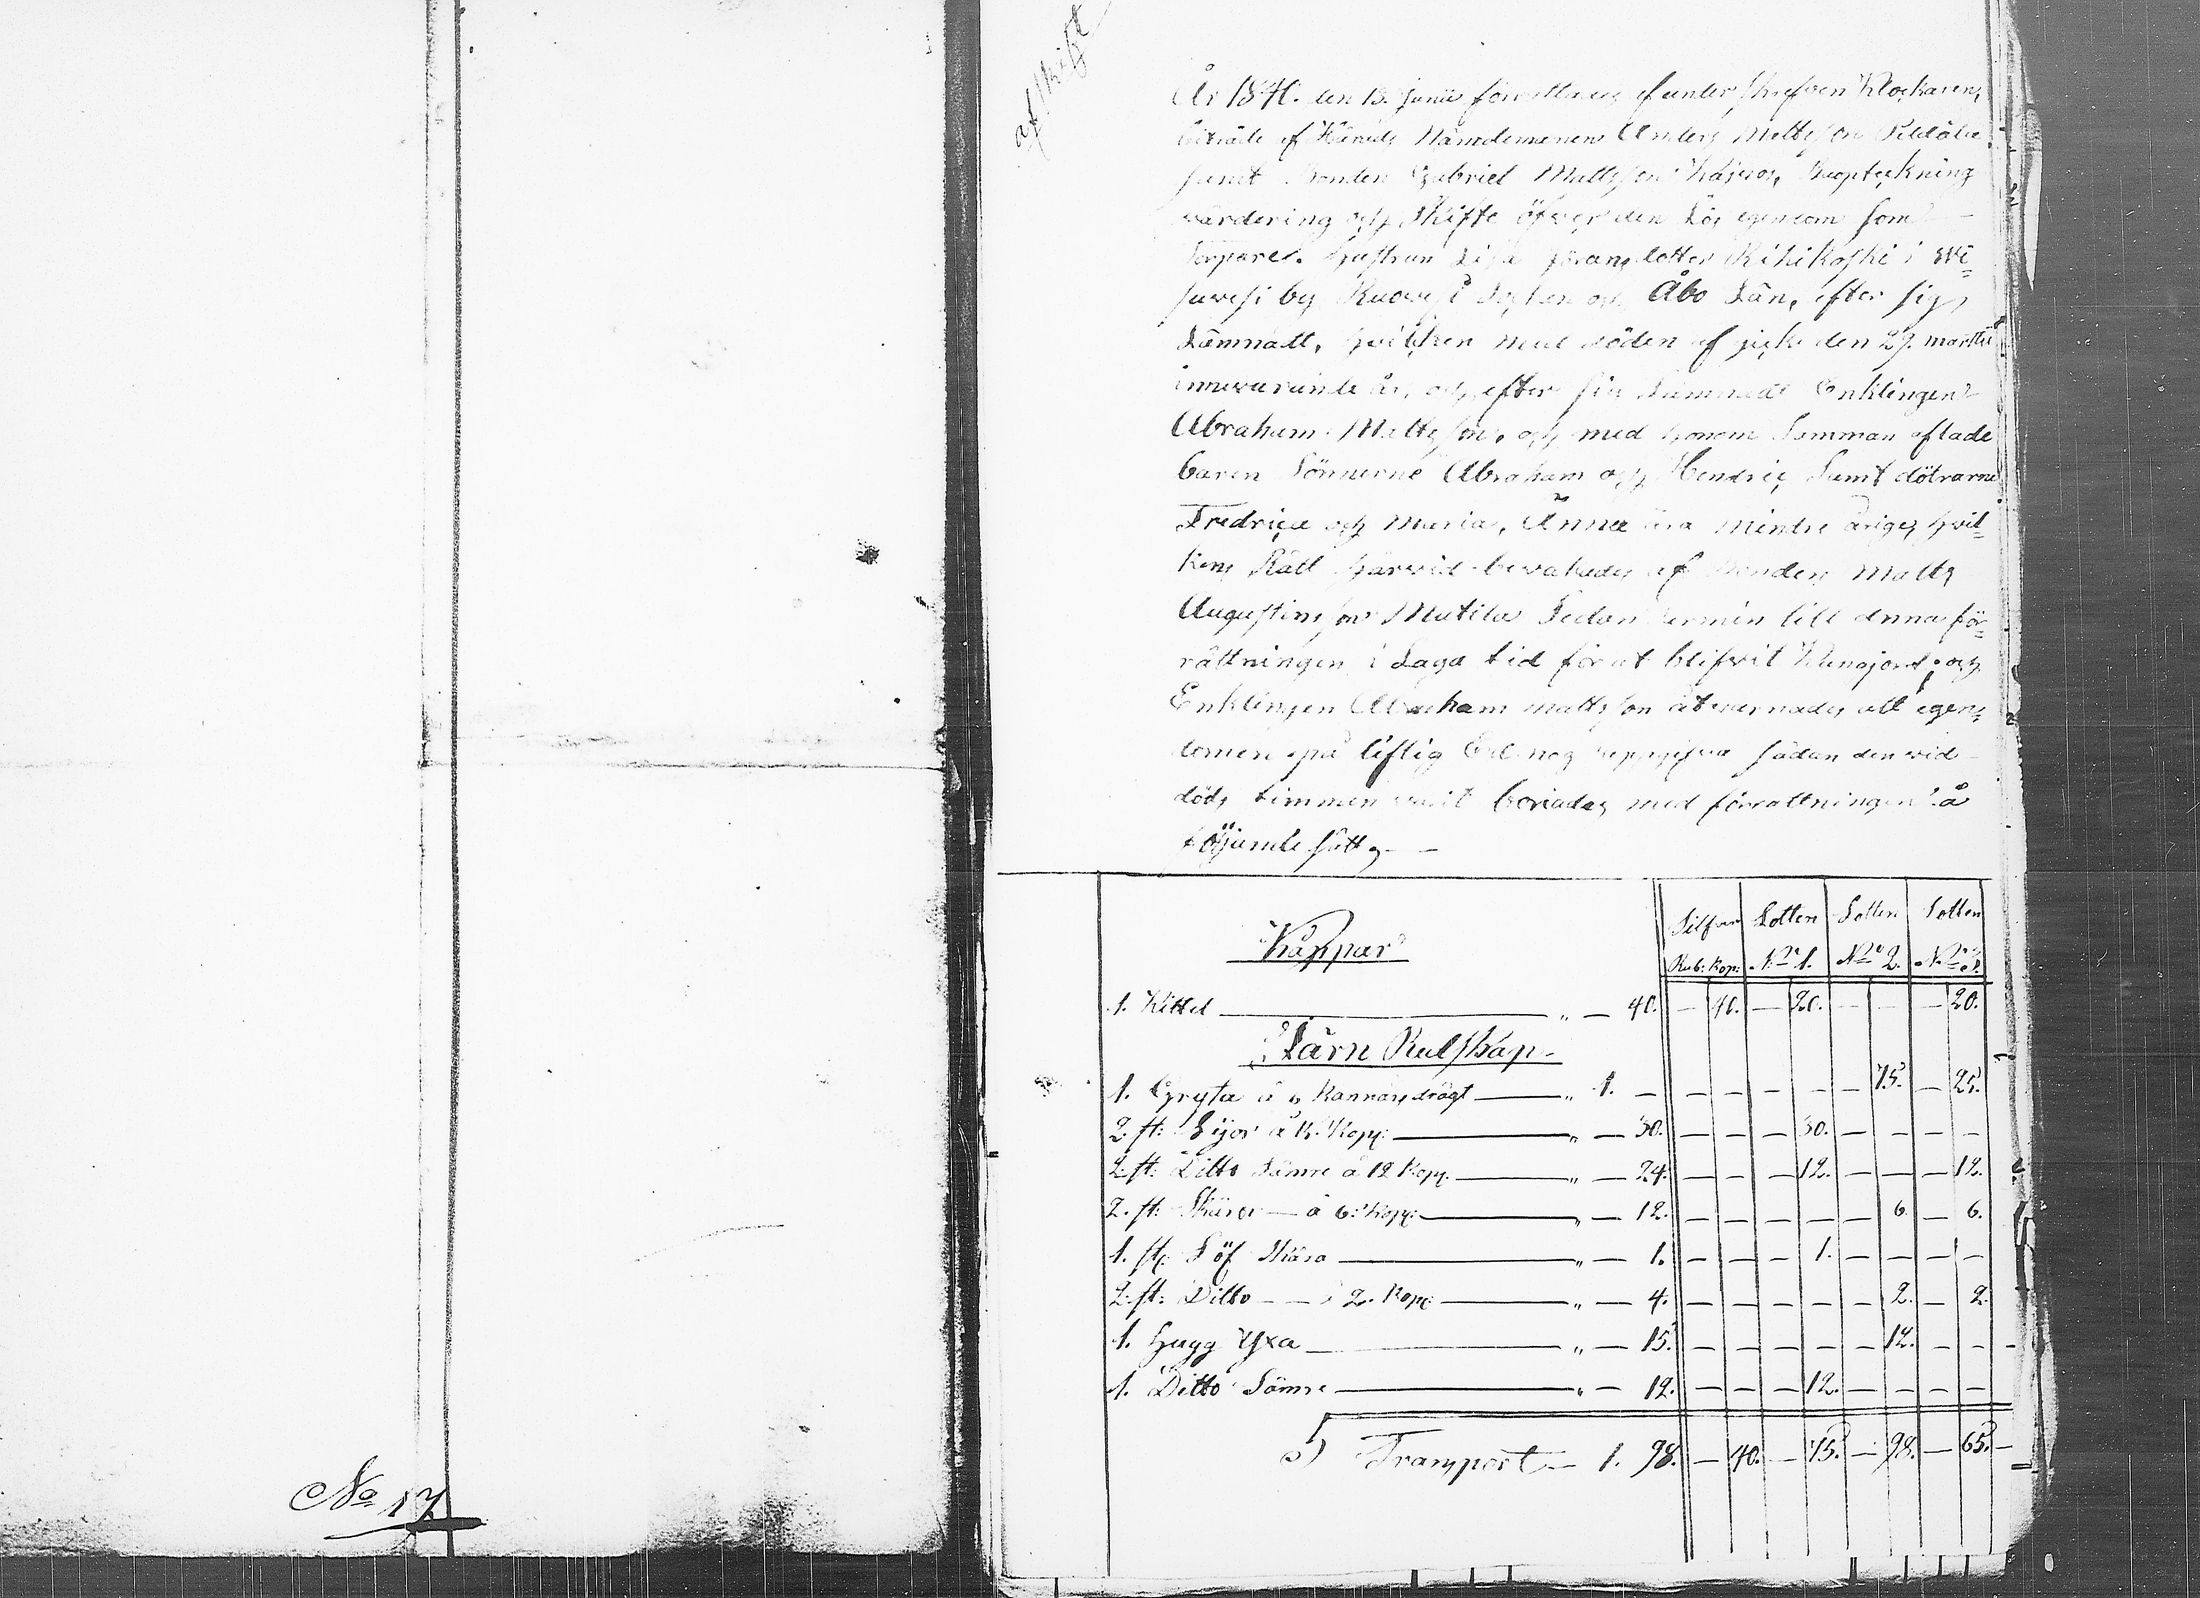 No 17
afskrift
År 1841. den 15. Junii förrättades af underskrefven Klockaren,
biträde af Härads Nämdemannen Anders Mattsson
samt Bonden Gabriel Mattsson Upteckning
värdering och Skifte öfver den Lös egendom som
Torpare. Hustrun Lisa Göransdotter Kihikoski i Wi=
suvesi by Ruovesi Sochen och Åbo Län, efter sig
Lämnatt, hvilken med döden af gick den 27. martii
innevarande år, och efter sig Lämnadt Enklingen
Abraham Mattsson, och med honom Samman aflade
baren Sönnerne Abraham och Hendric Samt dötrarne
Fredrica och Maria, Anna ära Mindre åriges hvil=
kens Rätt härvid bevakades af Bonden Matts
Augustinsson Matila Sedan termin till denna för=
rättningen i Laga tid för ut blifvit Kungjort; och
Enklingen Abraham mattsson åtvarnades att egen=
domen på liflig Ed nog uppgifva sådan den vid
döds timmen varit boriades med förrättningen å
följande sätt,
Silfver Lotten Lotten Lotten
Kåppar
Rub: Kop: No 1. No 2. No 3.
1. Kittel " — 40. — 40. — 20. — — — 20.
Järn Redskap
1. Gryta à Kannors drägt " 1. — — — — — — 75. — 25.
2. st: Lijor à Kopp: " — 30. — — — 30. — — — —
2. st: Ditto Sämre à 12 Kopp. " — 24. — — — 12. — — — 12.
2. st: Skäror — à 6. Kopp: " — 12. — — — — — 6. — 6.
1. st: Löf Skära " — 1. — — — 1. — — — —
2. st: Ditto — — à 2. Kop: " — 4. — — — — — 2. — 2.
1. Hugg Yxa " — 15. — — — — — 12. — —
1. Ditto Sämre " — 12. — — — 12. — — — —
Transport — 1. 98. — 40. — 75. — 98. — 65. —